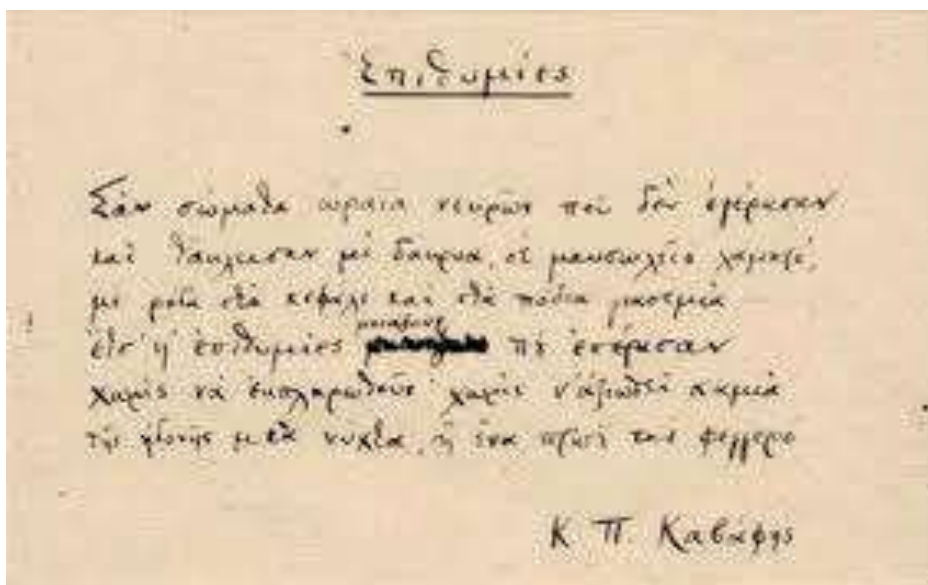 Ἐπιθυμίες
Σὰν σώματα ὡραῖα νεκρῶν ποὺ δὲν ἐγέρασαν
καὶ τἄκλεισαν, μὲ δάκρυα, σὲ μαυσωλεῖο λαμπρό,
μὲ ρόδα στὸ κεφάλι καὶ στὰ πόδια γιασεμιὰ —
ἔτσ' ᾑ ἐπιθυμίες μοιάζουν ποὺ ἐπέρασαν
χωρὶς νὰ ἐκπληρωθοῦν· χωρὶς ν' ἀξιωθεῖ καμιὰ
τῆς ἡδονῆς μιὰ νύχτα, ἢ ἕνα πρωῒ της φεγγερό.
Κ. Π. Καβάφης